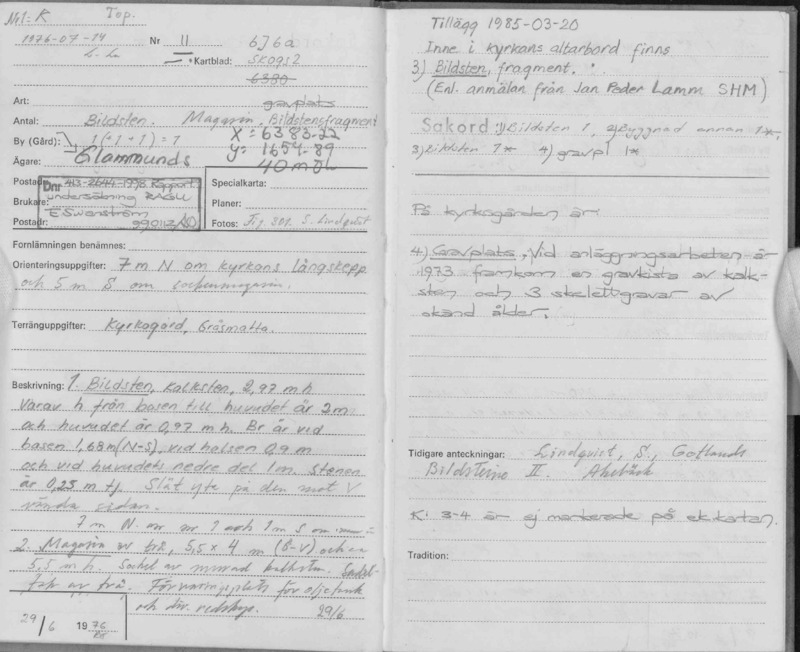 Nr1: K Top.
1976-07-14 Nr 11 6J6a
L-La Kartblad: Skogs2
6380
Art: gravplats
Antal: Bildsten. Magasin. Bildstensfragment
By (Gård): 1(+1+1)=1 X= 6383-22
Ägare: Glammunds Y= 1654-89
40 m ö h
Postadr: Dnr 413-2644-1998 Rapport Specialkarta:
Brukare: undersökning RAGU Planer:
E Swanström
Postadr: 990112/ Fotos: Fig 301. S. Lindqvist
Fornlämningen benämnes:
Orienteringsuppgifter: 7 m N om kyrkans långskepp
och 5 m S om sockenmagasin.
Terränguppgifter: Kyrkogård, Gräsmatta.
Beskrivning: 1. Bildsten, kalksten, 2,97 m h
varav h från basen till huvudet är 2m
och huvudet är 0,97 m h. Br är vid
basen 1,68m (N-S), vid halsen 0,9 m
och vid huvudets nedre del 1m. Stenen
är 0,25 m tj. Slät yta på den mot V
vända sidan.
7 m N om nr 1 och 1m S om
2. Magasin av trä, 5,5 x 4 m (Ö-V) och ca
5,5 m h. Sockel av murad kalksten. Sadel-
tak av trä. Förvaringsplats för oljetank
och div. redskap. 29/6
29/6 1976
Tillägg 1985-03-20
Inne i kyrkans altarbord finns
3) Bildsten, fragment.
(Enl. anmälan från Jan Peder Lamm SHM)
Sakord: 1) Bildsten 1, 2) Byggnad annan 1*,
3) Bildsten 1* 4) gravpl 1*
På kyrkogården är:
4.) Gravplats, Vid anläggningsarbeten år
1973 framkom en gravkista av kalk-
sten och 3 skelettgravar av
okänd ålder.
Tidigare anteckningar: Lindqvist, S., Gotlands
Bildsteine II. Akebäck
K: 3-4 är ej markerade på ek.kartan.
Tradition: